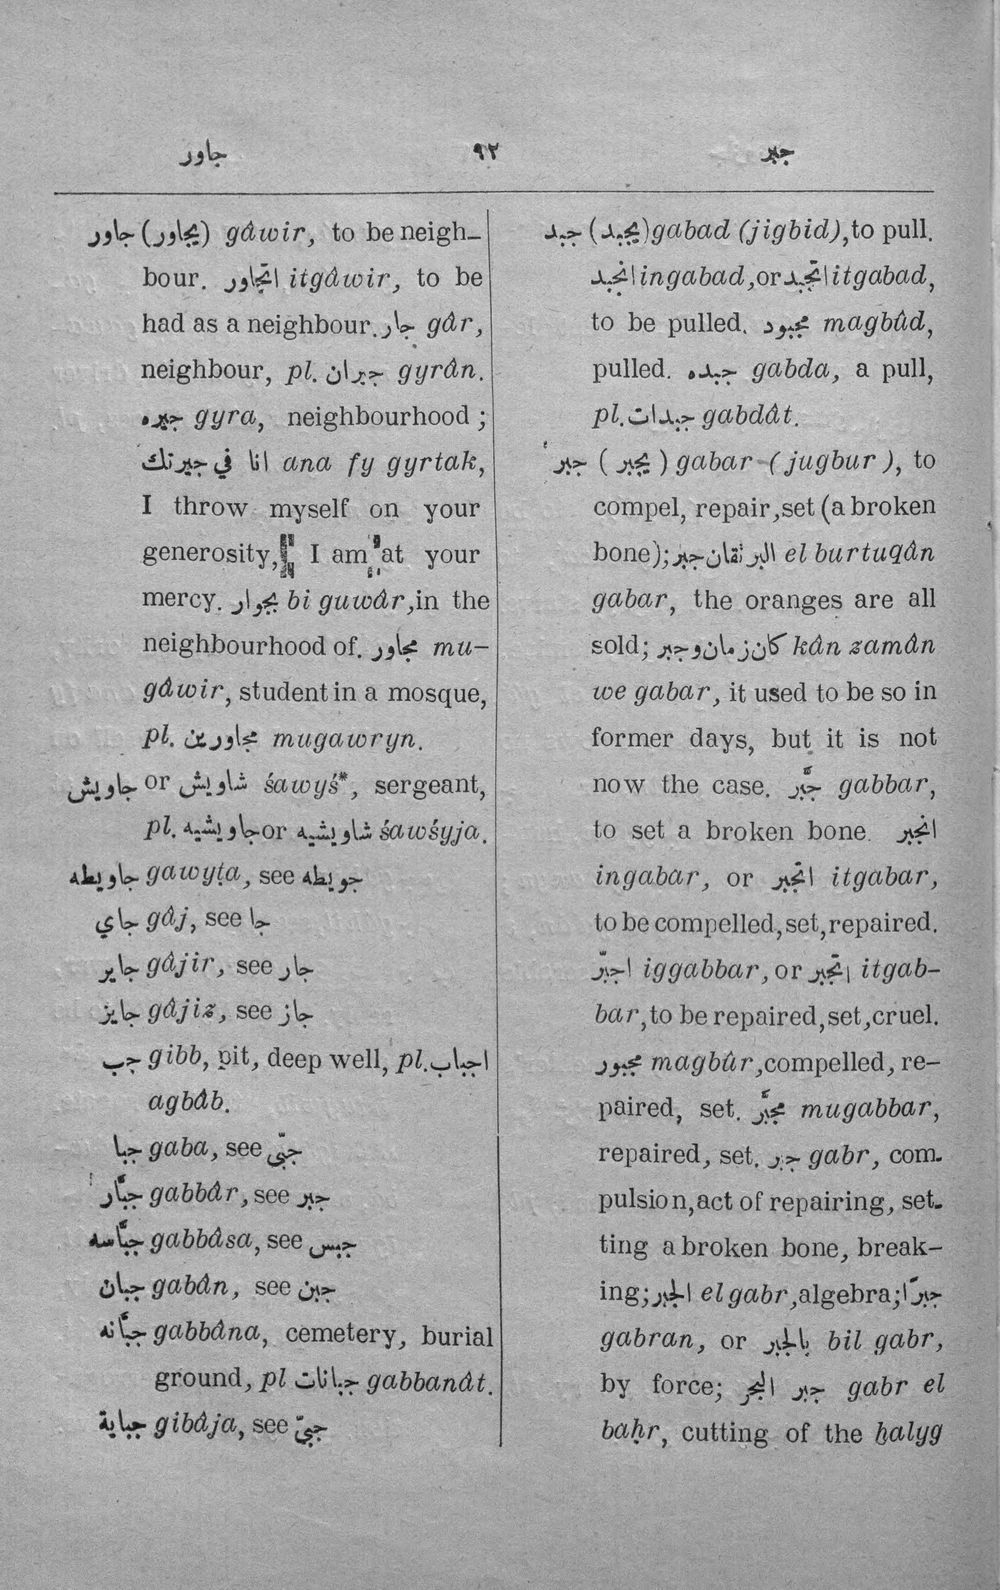 جاور ٩٢ جبر
جاور (يجاور) gâwir, to be neigh-
bour. اتجاور itgâwir, to be
had as a neighbour. جار gâr,
neighbour, pl. جيران gyrân.
جيره gyra, neighbourhood;
انا في جيرتك ana fy gyrtak,
I throw myself on your
generosity, I am at your
mercy. بجوار bi guwâr, in the
neighbourhood of. مجاور mu-
gâwir, student in a mosque,
pl. مجاورين mugawryn.
جاويش or شاويش śawyś*, sergeant,
pl. جاويشيه or شاويشيه śawśyja.
جاويطه gawyṭa, see جويطه
جاي gâj, see جا
جاير gâjir, see جار
جايز gâjiz, see جاز
جب gibb, pit, deep well, pl. اجباب
agbâb.
جبا gaba, see جبّى
جبَّار gabbâr, see جبر
جبَّاسه gabbâsa, see جبس
جبان gabân, see جبن
جبَّانه gabbâna, cemetery, burial
ground, pl جبانات gabbanât.
جباية gibâja, see جبيّ
جبد (يجبد) gabad (jigbid), to pull.
انجبد ingabad, or اتجبد itgabad,
to be pulled. مجبود magbûd,
pulled. جبده gabda, a pull,
pl. جبدات gabdât.
جبر (يجبر) gabar (jugbur), to
compel, repair, set (a broken
bone); البرتقان جبر el burtuqân
gabar, the oranges are all
sold; كان زمان وجبر kân zamân
we gabar, it used to be so in
former days, but it is not
now the case. جبَّر gabbar,
to set a broken bone. انجبر
ingabar, or اتجبر itgabar,
to be compelled, set, repaired.
اجبّر iggabbar, or اتجبّر itgab-
bar, to be repaired, set, cruel.
مجبور magbûr, compelled, re-
paired, set. مجبَّر mugabbar,
repaired, set. جبر gabr, com-
pulsion, act of repairing, set-
ting a broken bone, break-
ing; الجبر el gabr, algebra; جبرًا
gabran, or بالجبر bil gabr,
by force; جبر البحر gabr el
baḥr, cutting of the ḫalyg